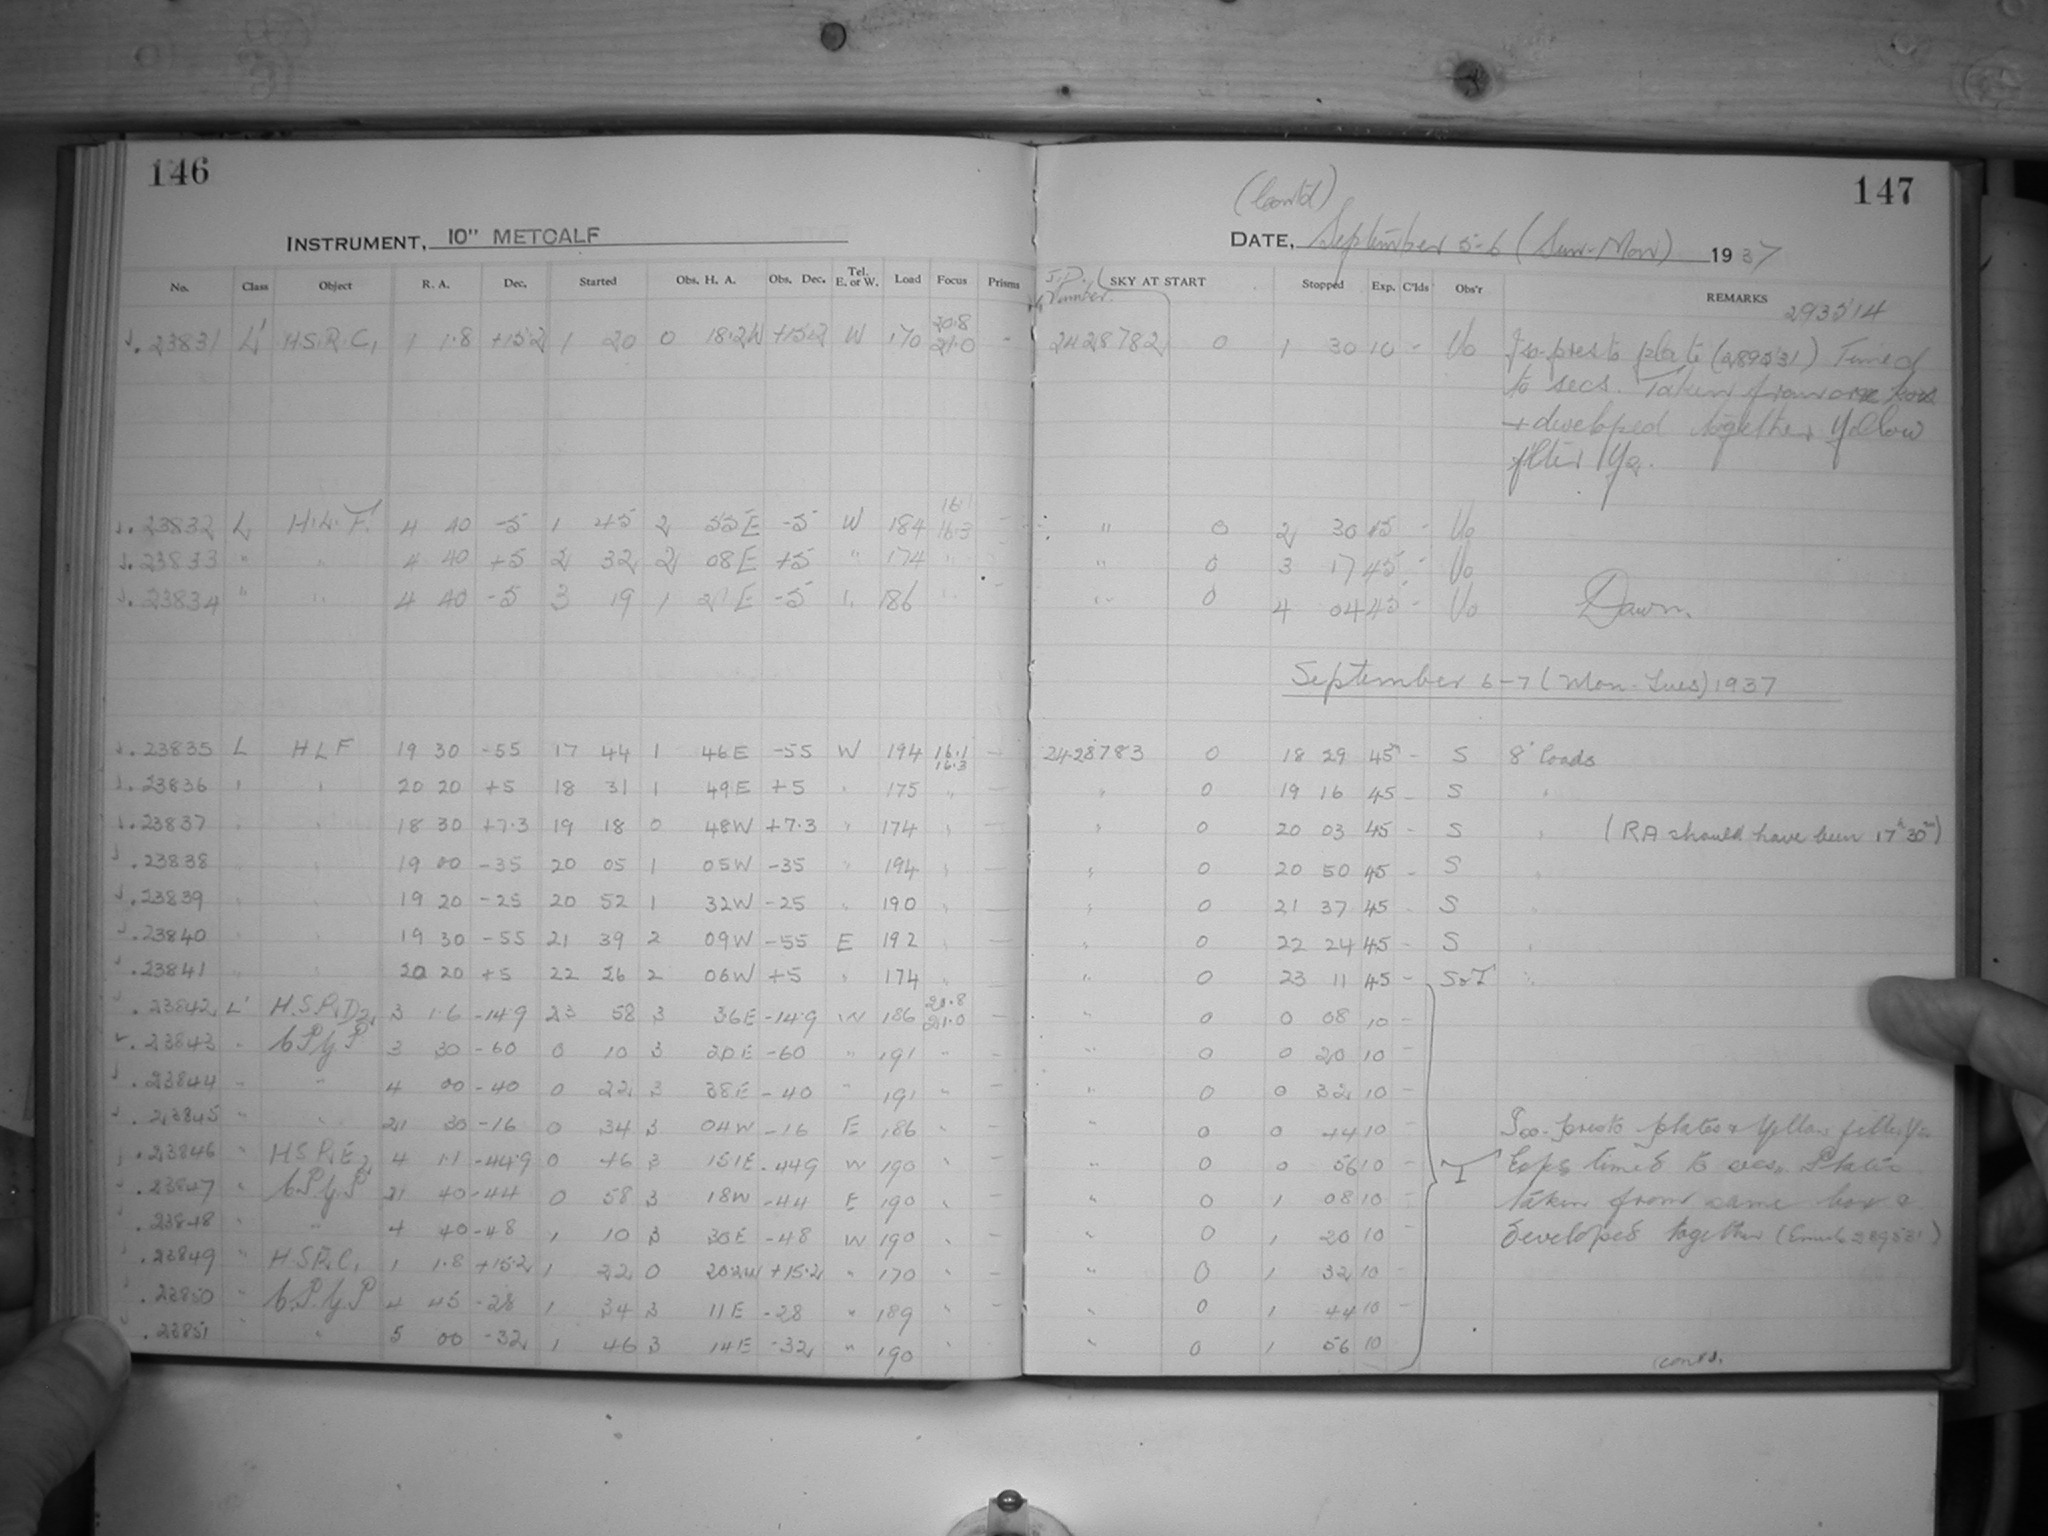 146
INSTRUMENT, 10" METCALF
No. Class Object R. A. Dec. Started Obs. H. A. Obs. Dec. Tel. E. or W. Load Focus Prisms
.23831 L' H.S.P.C, 1 1.8 +15.2 1 20 0 18.2W +15.2 W 170 20.8 21.0 -
.23832 L H.L.F. 4 40 -5 1 45 2 55E -5 W 184 16.1 16.3 -
.23833 " " 4 40 +5 2 32 2 08E +5 " 174 "
.23834 " " 4 40 -5 3 19 1 21E -5 " 186
.23835 L HLF 19 30 -55 17 44 1 46E -55 W 194 16.1 16.3 -
.23836 " " 20 20 +5 18 31 1 49E +5 " 175 " -
.23837 " " 18 30 +7.3 19 18 0 48W +7.3 " 174 " -
.23838 19 00 -35 20 05 1 05W -35 " 194 " -
.23839 19 20 -25 20 52 1 32W -25 " 190 " -
.23840 19 30 -55 21 39 2 09W -55 E 192 " -
.23841 20 20 +5 22 26 2 06W +5 " 174 " -
.23842 L' H.S.P.D2 3 1.6 -14.9 23 58 3 36E -14.9 W 186 20.8 21.0 -
.23843 " 3 30 -60 0 10 3 20E -60 " 191 " -
.23844 " " 4 00 -40 0 22 3 38E -40 " 191 " -
.23845 " " 21 30 -16 0 34 3 04W -16 E 186 " -
.23846 " H.S.P.E2 4 1.1 -44.9 0 46 3 15.1E -44.9 W 190 " -
.23847 " 21 40 -44 0 58 3 18W -44 E 190 " -
.23848 " " 4 40 -48 1 10 3 30E -48 W 190 " -
.23849 " H.S.P.C, 1 1.8 +15.2 1 22 0 20.2W +15.2 " 170 " -
.23850 " 4 45 -28 1 34 3 11E -28 " 189 " -
.23851 " 5 00 -32 1 46 3 14E -32 " 190 " -
147
(Contd)
DATE, September 5-6 (Sun-Mon) 1937
J.D. Number. SKY AT START Stopped Exp. C'lds Obs'r REMARKS
293514
2428782 0 1 30 10 - Vo Iso-presto plate (289531) Timed
to secs. Taken from one box
+ developed together Yellow
filter Y2.
" 0 2 30 45 - Vo
" 0 3 17 45 - Vo
" 0 4 04 45 - Vo Dawn.
September 6-7 (Mon-Tues) 1937
2428783 0 18 29 45 - S 8" loads
" 0 19 16 45 - S "
" 0 20 03 45 - S " (RA should have been 17h 30m)
" 0 20 50 45 - S "
" 0 21 37 45 - S "
" 0 22 24 45 - S "
" 0 23 11 45 - S&I "
" 0 0 08 10 -
" 0 0 20 10 -
" 0 0 32 10 -
" 0 0 44 10 - Iso-presto plates & Yellow filter Y2
" 0 0 56 10 - I Exps timed to secs. Plates
" 0 1 08 10 - taken from same box &
" 0 1 20 10 - developed together (Emul. 289531)
" 0 1 32 10 -
" 0 1 44 10 -
" 0 1 56 10
contd.